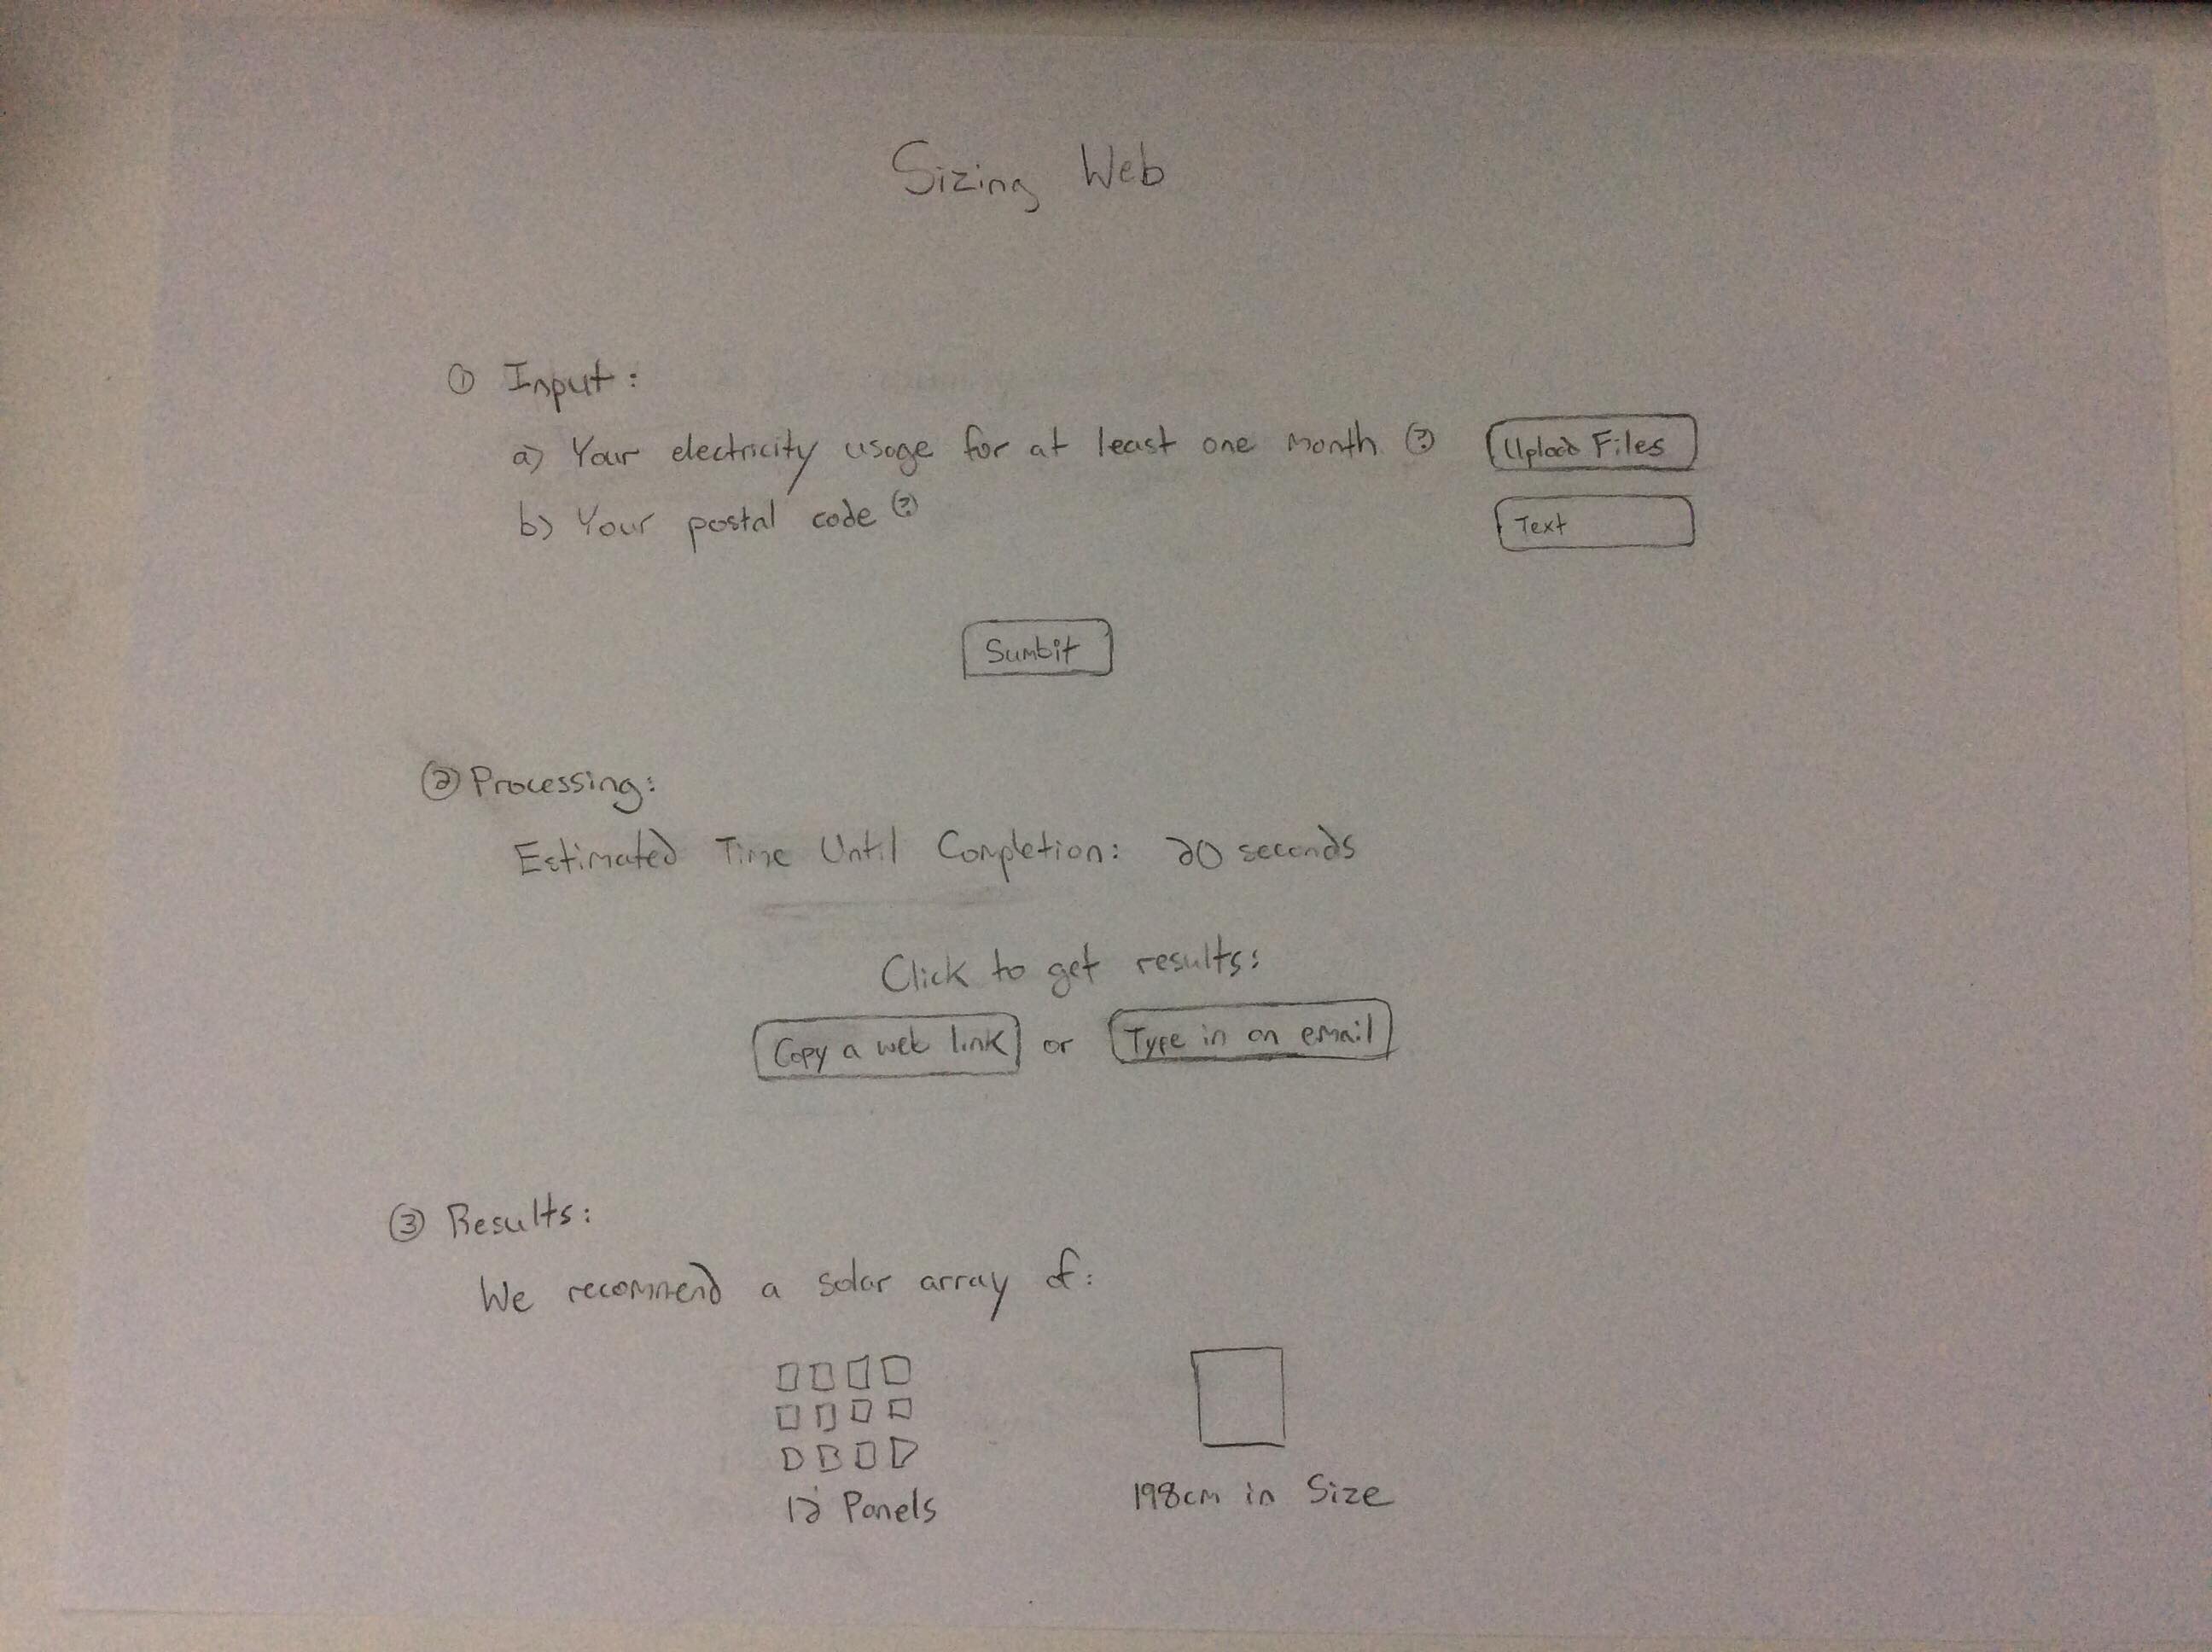 Sizing Web
① Input:
a) Your electricity usage for at least one month ? Upload Files
b) Your postal code ? Text
Sumbit
② Processing:
Estimated Time Until Completion: 20 seconds
Click to get results:
Copy a web link or Type in an email
③ Results:
We recommend a solar array of:
12 Panels 198cm in Size